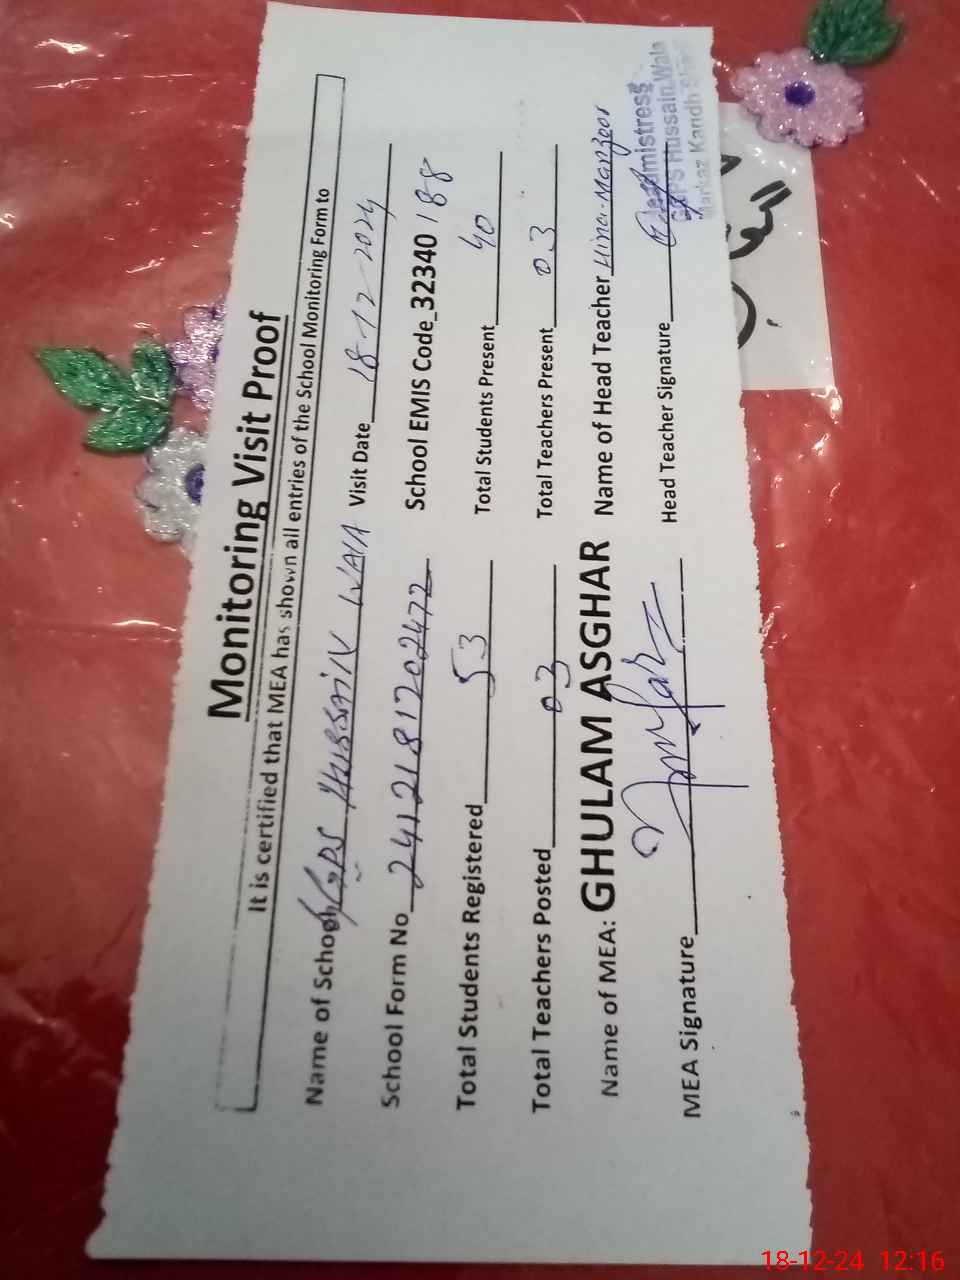 Monitoring Visit Proof
It is certified that MEA has shown all entries of the School Monitoring Form to
Name of School GGPS Hussain Wala Visit Date 18-12-2024
School Form No 2412181202472 School EMIS Code_32340188
Total Students Registered 53 Total Students Present 40
Total Teachers Posted 03 Total Teachers Present 03
Name of MEA: GHULAM ASGHAR Name of Head Teacher Hina Manzoor
MEA Signature Head Teacher Signature
Headmistress
GGPS Hussain Wala
Markaz Kandh
18-12-24 12:16